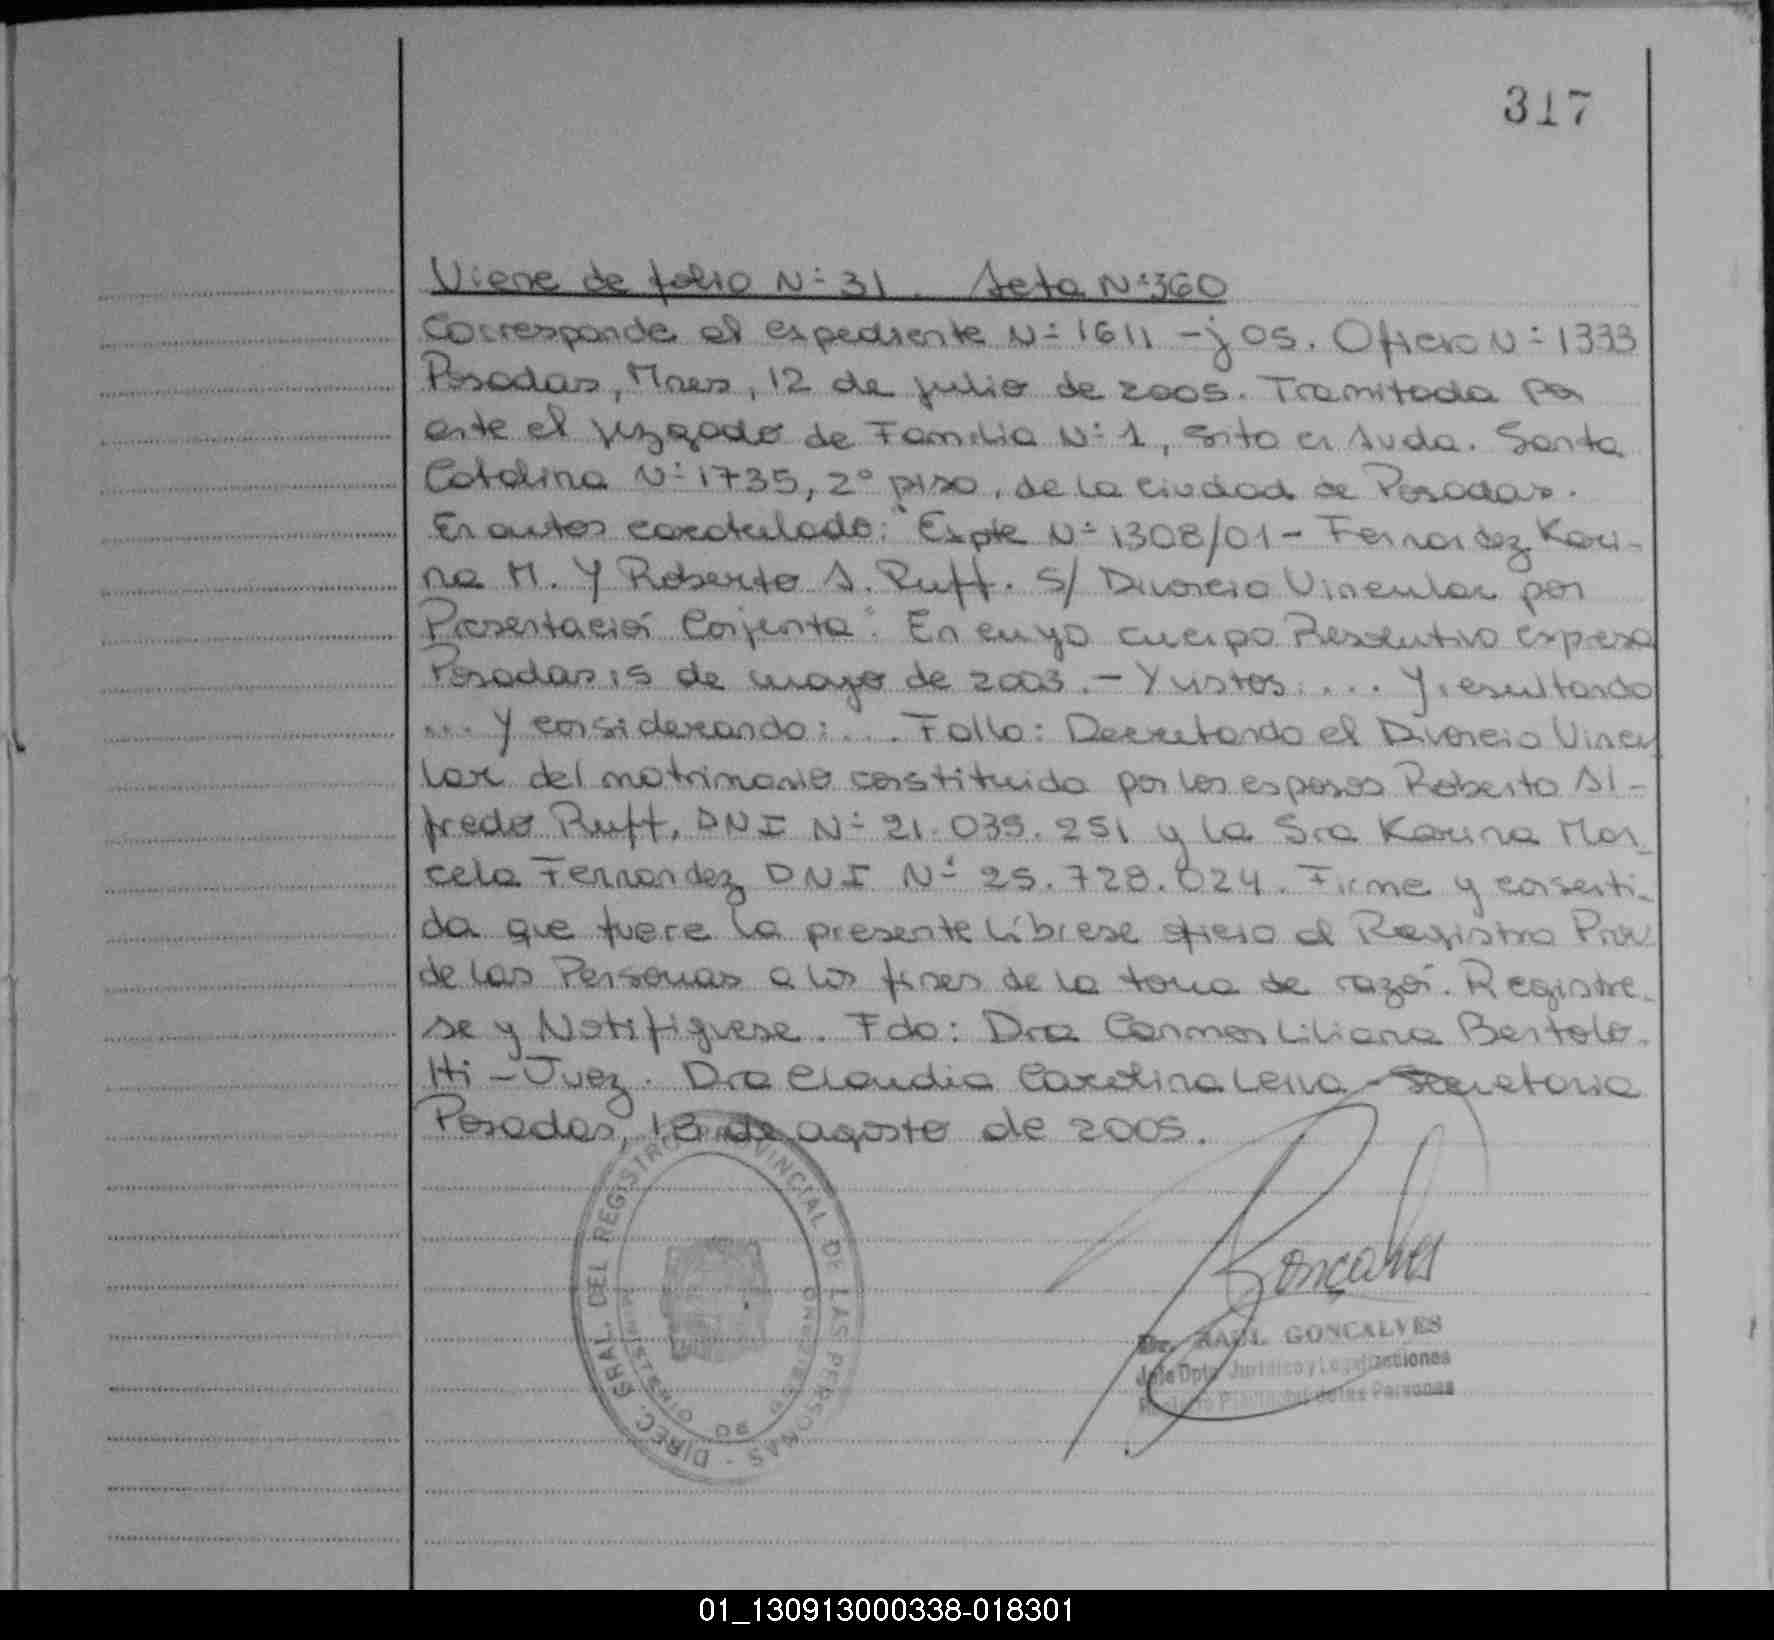 317
Viene de folio N° 31. Acta N° 360
Corresponde al expediente N° 1611 - j 05. Oficio N° 1333
Posadas, Mnes, 12 de julio de 2005. Tramitada por
ante el juzgado de Familia N° 1, sito en Avda. Santa
Catalina N° 1735, 2° piso, de la ciudad de Posadas.
En autos caratulado: "Expte N° 1308/01 - Fernandez Kari-
na M. y Roberto A. Ruff. S/ Divorcio Vincular por
Presentación Conjunta". En cuyo cuerpo Resolutivo expresa
Posadas 15 de mayo de 2003. - Y vistos: ... y resultando
... y considerando: ... Fallo: Decretando el Divorcio Vincu
lar del matrimonio constituido por los esposos Roberto Al-
fredo Ruff, DNI N° 21.039.251 y la Sra Karina Mar-
cela Fernandez DNI N° 25.728.024. Firme y consenti-
da que fuere la presente líbrese oficio al Registro Prov
de las Personas a los fines de la toma de razón. Registre-
se y Notifiquese. Fdo: Dra Carmen Liliana Bertolo-
tti - Juez. Dra Claudia Carolina - Secretaria
Posadas, 18 de agosto de 2005.
DIREC. GRAL. DEL REGISTRO PROVINCIAL DE LAS PERSONAS -
Goncalves
Dr. RAUL GONCALVES
Jefe Dpto. Jurídico y Legalizaciones
Registro Provincial de las Personas
01_130913000338-018301